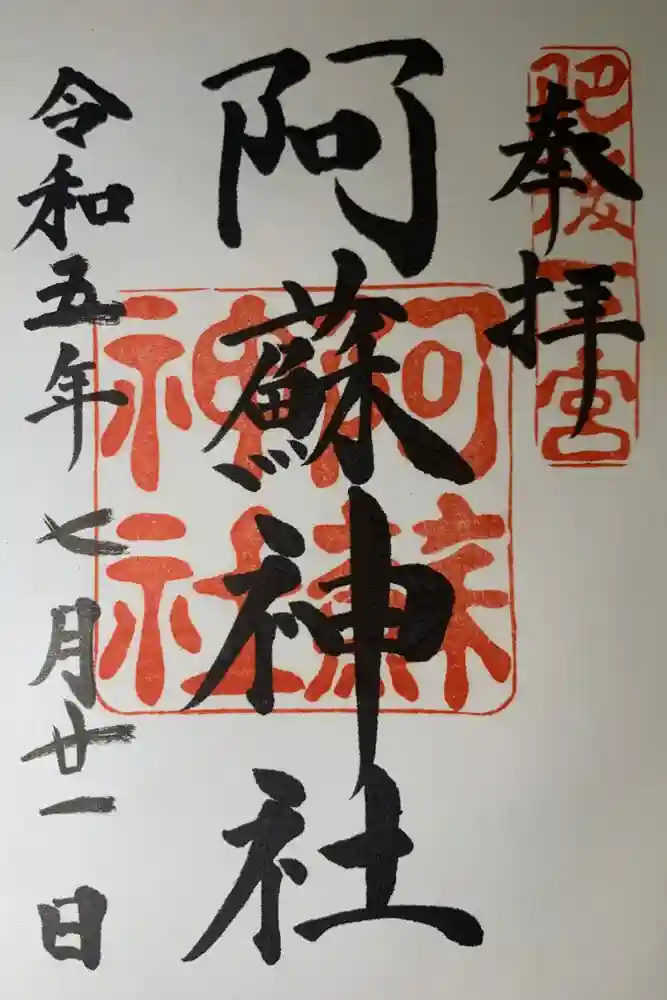 奉拝
肥後一宮
阿蘇神社
阿蘇
神社
令和五年七月廿一日